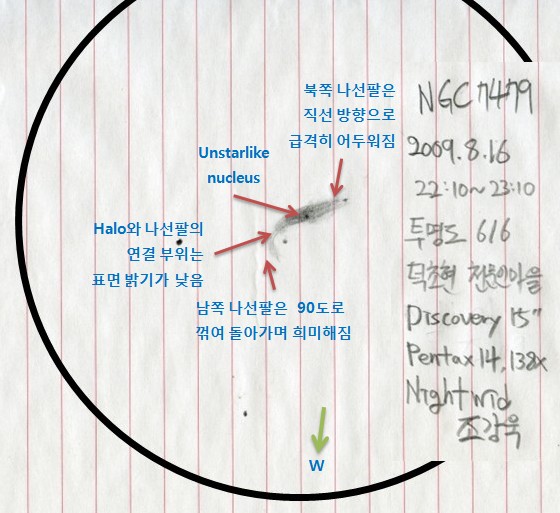 북쪽 나선팔은
직선 방향으로
급격히 어두워짐
Unstarlike
nucleus
Halo와 나선팔의
연결 부위는
표면 밝기가 낮음
남쪽 나선팔은 90도로
꺾여 돌아가며 희미해짐
W
NGC 7479
2009.8.16
22:10~23:10
투명도 6/6
덕초현 천문인마을
Discovery 15"
Pentax 14, 138x
Nightwid
조강욱